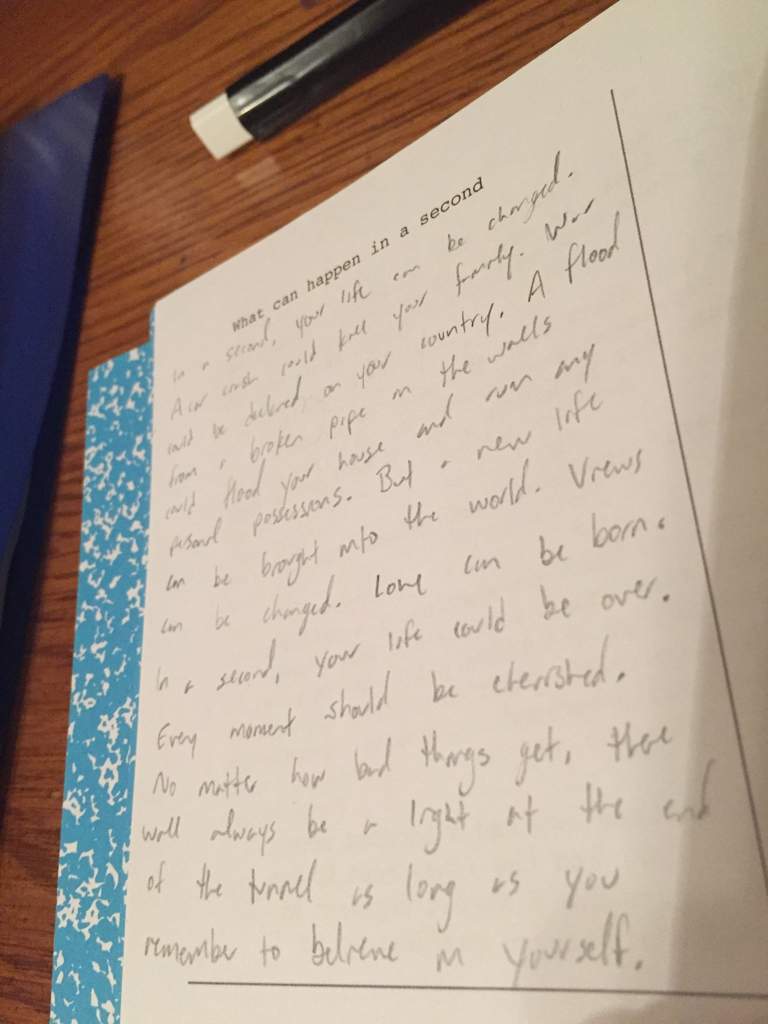 What can happen in a second
In a second, your life can be changed.
A car crash could kill your family. War
could be declared, on your country. A flood
from a broken pipe in the walls
could flood your house and ruin any
personal possessions. But a new life
can be brought into the world. Views
can be changed. Love can be born.
In a second, your life could be over.
Every moment should be cherished.
No matter how bad things get, there
will always be a light at the end
of the tunnel as long as you
remember to believe in yourself.